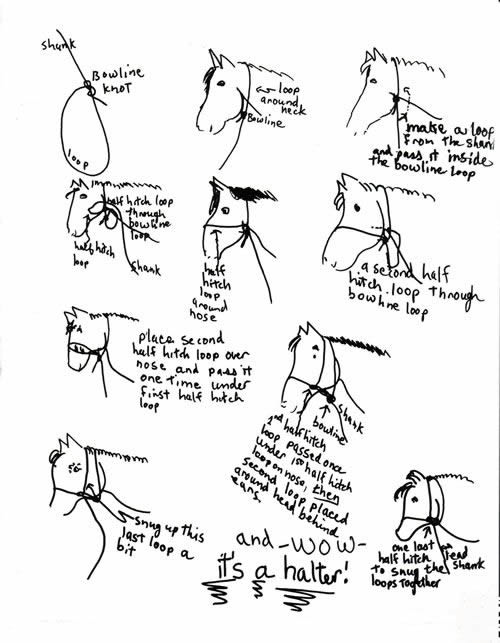 shank
Bowline
knot
loop
loop
around
neck
Bowline
make a loop
from the shank
and pass it inside
the bowline loop
half hitch loop
through
bowline
loop
half hitch
loop
shank
half
hitch
loop
around
nose
a second half
hitch loop through
bowline loop
place second
half hitch loop over
nose and pass it
one time under
first half hitch
loop
shank
bowline
2nd half hitch
loop passed once
under 1st half hitch
loop on nose, then
second loop placed
around head behind
ears.
snug up this
last loop a
bit
and -WOW-
it's a halter!
one last
half hitch
to snug the
loops together
shank